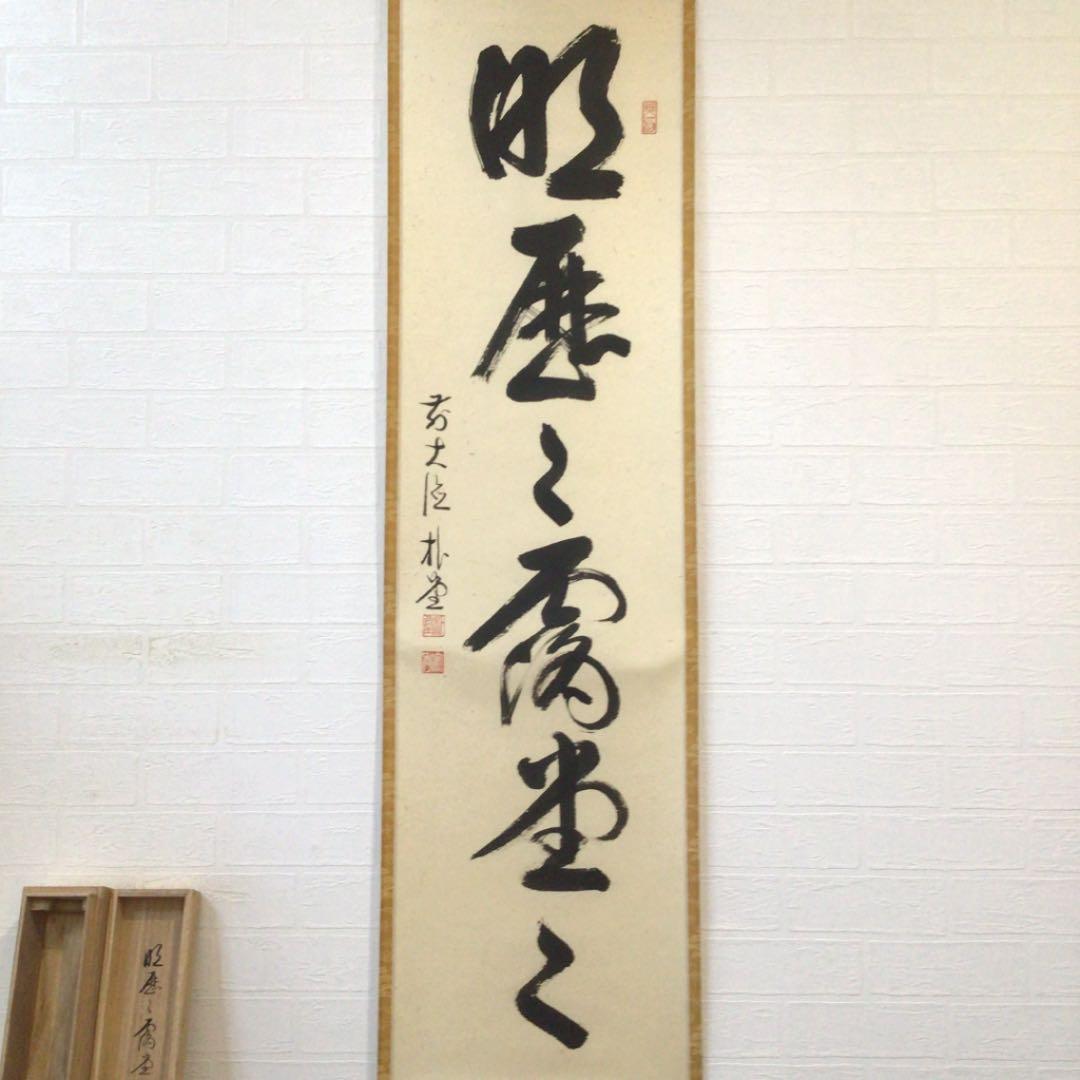 明歴々露堂々
前大徳 朴堂
明歴々露堂